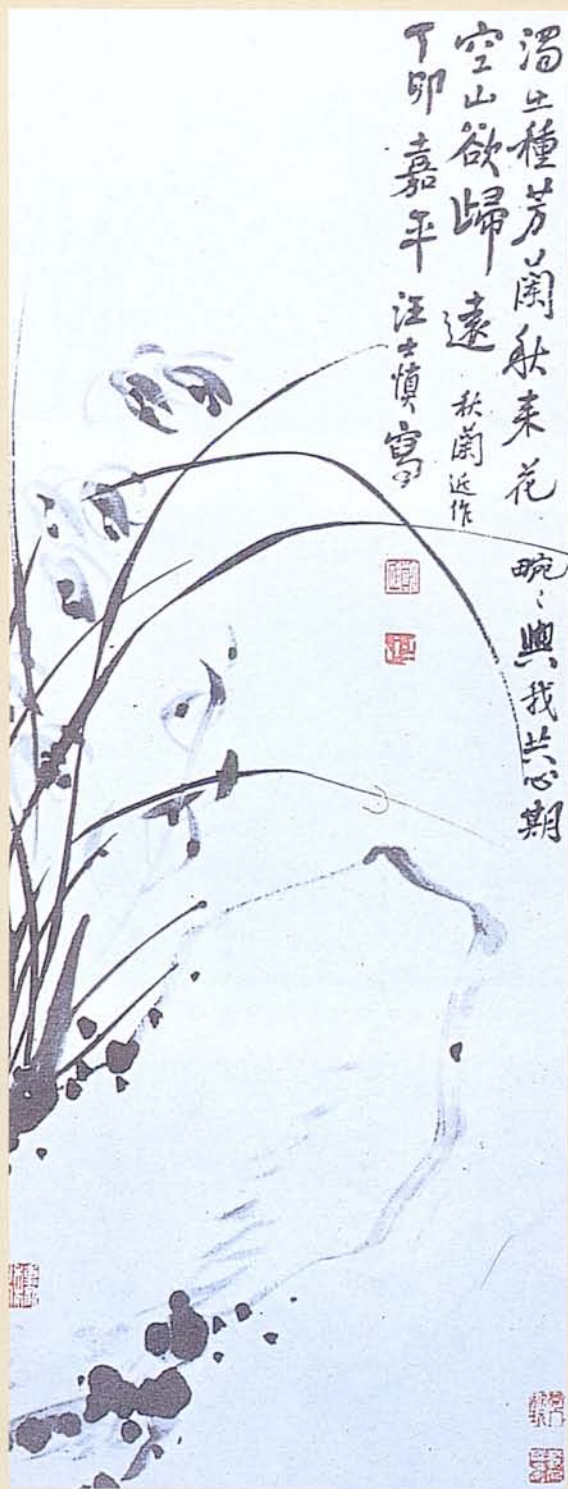 濁土種芳蘭秋来花畹〻與我共心期
空山欲歸遠 秋蘭近作
丁卯嘉平汪士慎寫